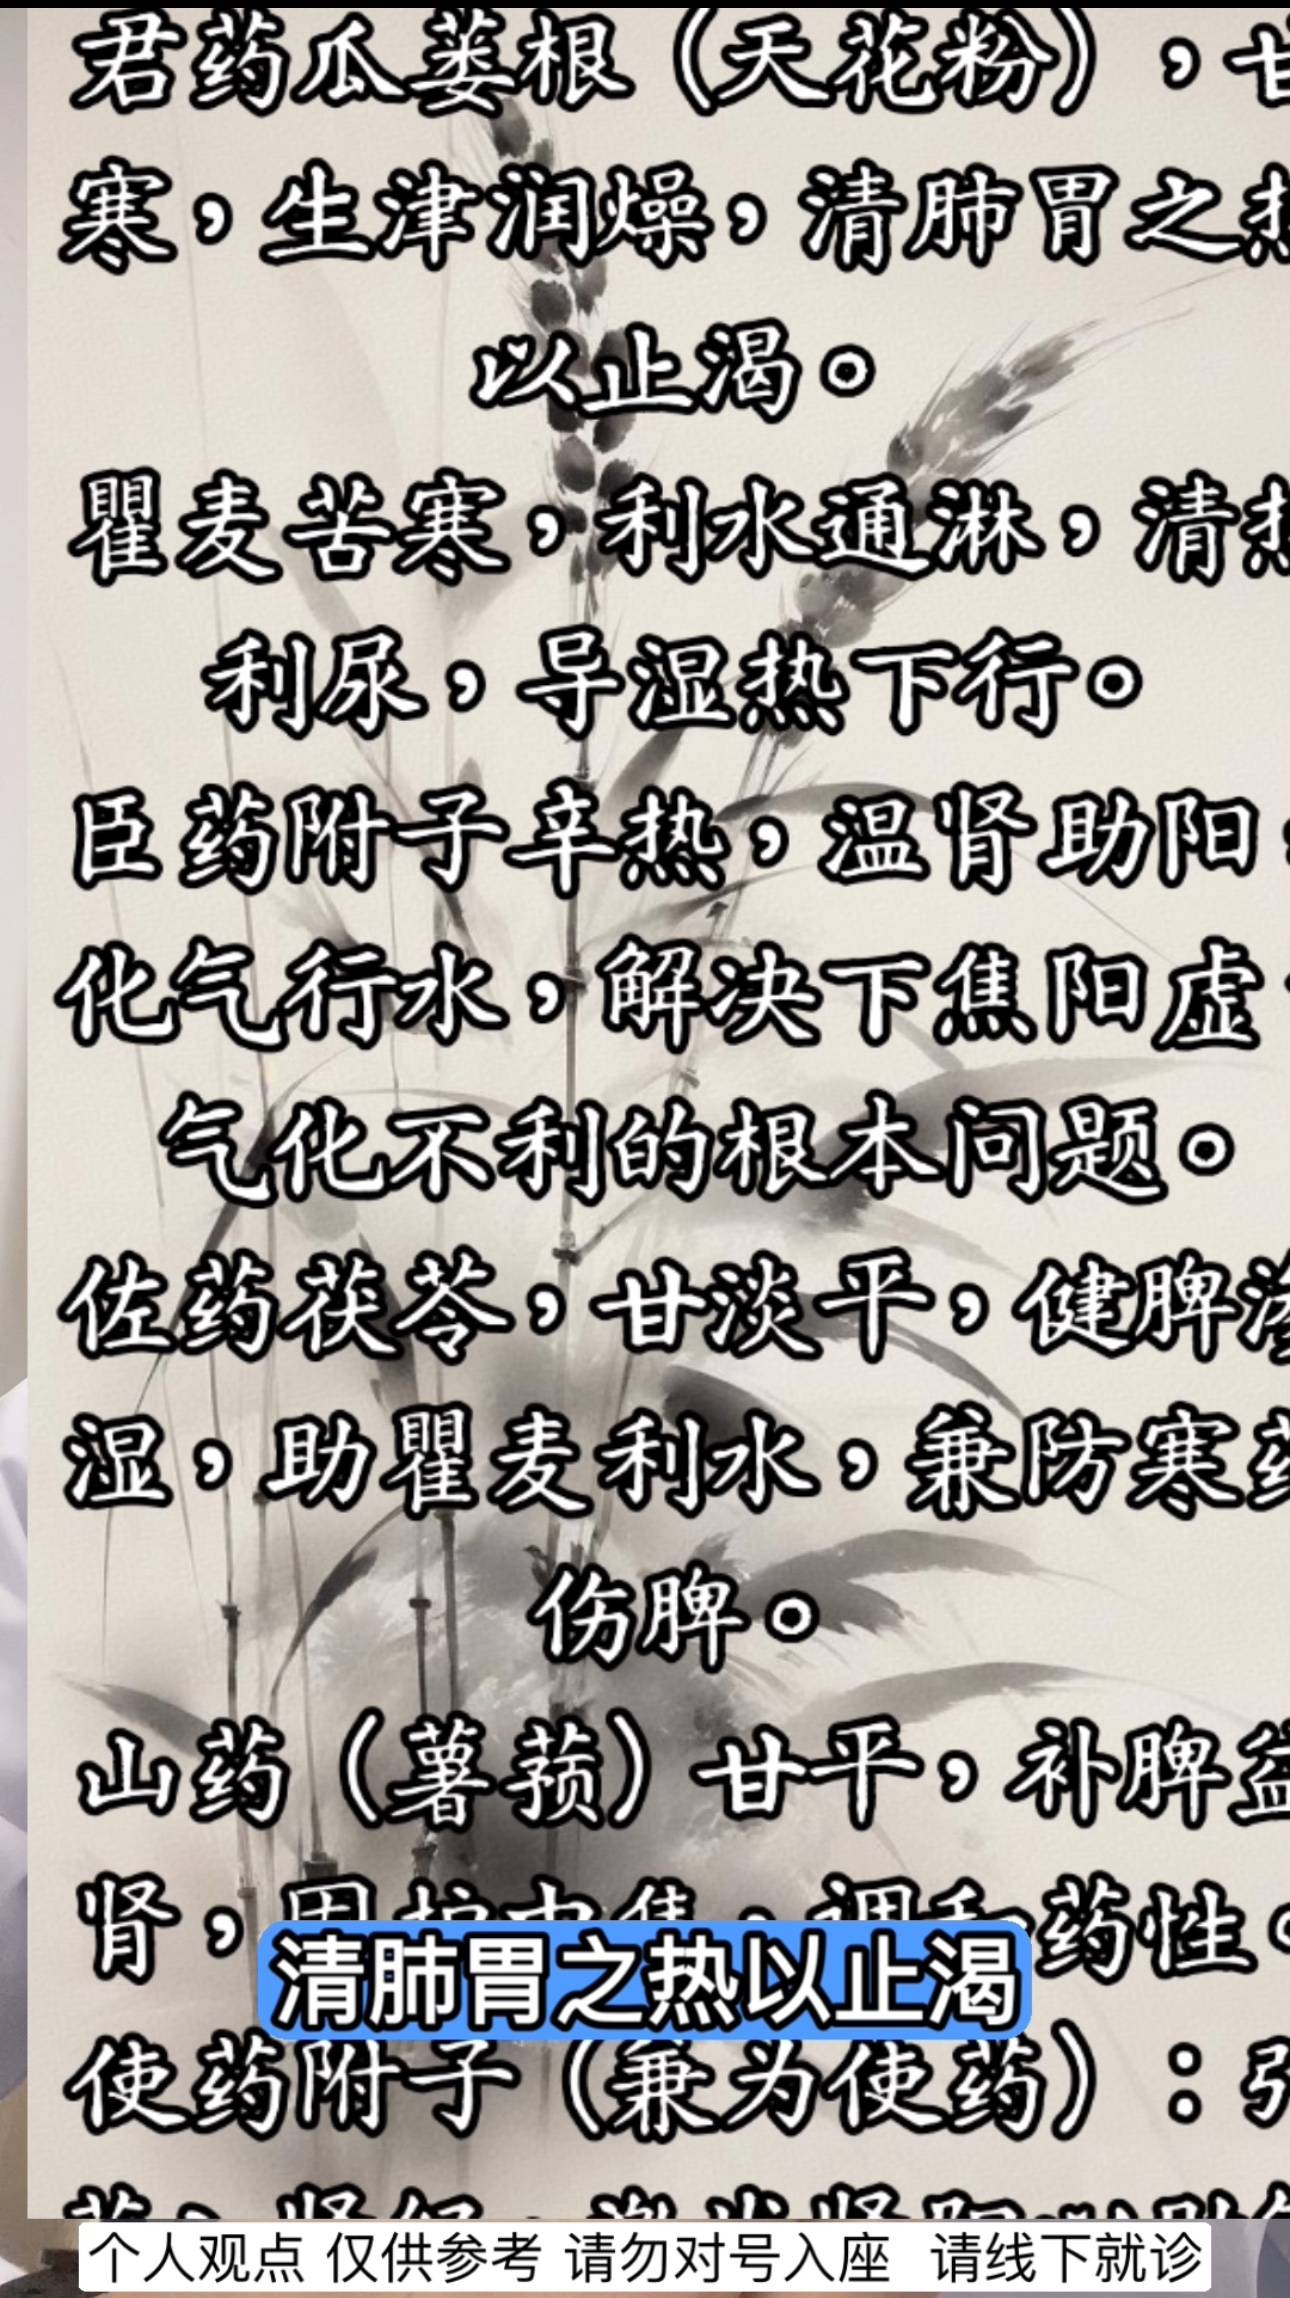 君药瓜蒌根（天花粉），甘
寒，生津润燥，清肺胃之热
以止渴。
瞿麦苦寒，利水通淋，清热
利尿，导湿热下行。
臣药附子辛热，温肾助阳，
化气行水，解决下焦阳虚
气化不利的根本问题。
佐药茯苓，甘淡平，健脾渗
湿，助瞿麦利水，兼防寒药
伤脾。
山药（薯蓣）甘平，补脾益
肾，固护中焦，调和药性。
清肺胃之热以止渴
使药附子（兼为使药）：引
个人观点 仅供参考 请勿对号入座 请线下就诊